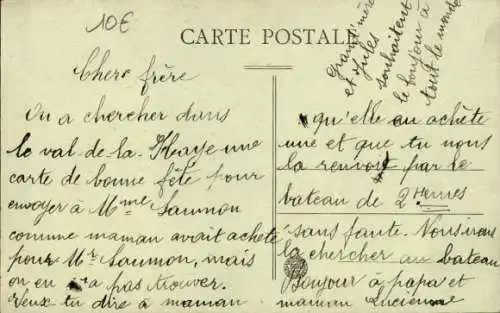 10€
CARTE POSTALE
Grand'mère
et Jules
souhaitent
le bonjour à
tout le monde
Cher frère
On a chercher dans
le val-de-la-Haye une
carte de bonne fête pour
envoyer à Mme Saumon
comme maman avait acheté
pour Mr Saumon, mais
on en a pas trouver.
Veux-tu dire à maman
qu'elle en achète
une et que tu nous
la renvoit par le
bateau de 2
sans faute. Nous irons
la chercher au bateau
Bonjour à papa et
maman Lucienne